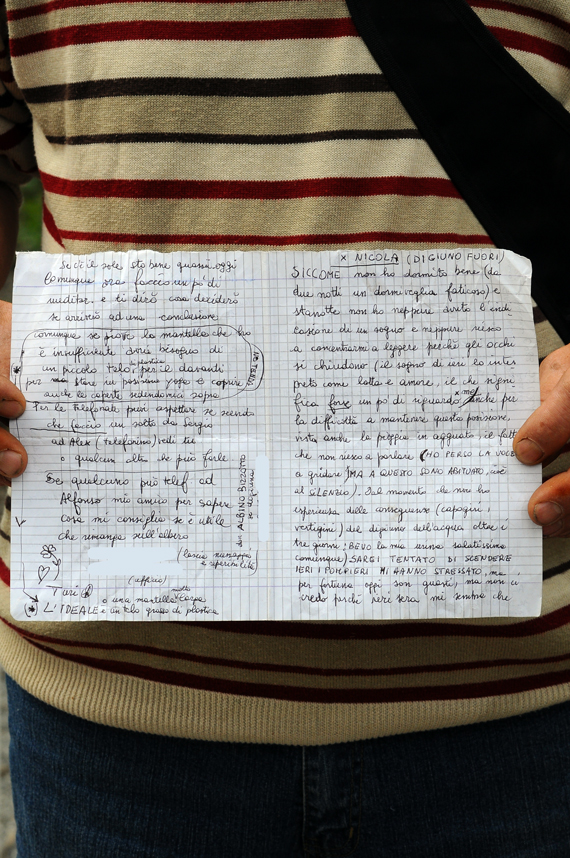 Se c'è il sole sto bene quassù, oggi
Comunque ora faccio un po' di
e ti dirò cosa deciderò
se arrivo ad una conclusione.
comunque se piove la mantella che ho
è insufficiente avrei bisogno di
un piccolo telo, per il davanti
per stare in posizione yoga e coprire
anche le coperte
Per le telefonate puoi aspettare se scendo
che faccio un salto da Sergio
ad Alex (telefonino) vedi tu
o qualcun altro che può farle.
Se qualcuno può telef ad
Alfonso mio amico per sapere
cosa mi consiglia se è utile
che rimanga sull'albero
(lascia messaggi
(ufficio)
Turi
o una mantella
L'IDEALE è un telo grosso di plastica
ALBINO BIZZOTTO
x NICOLA (DIGIUNO FUORI)
SICCOME non ho dormito bene (da
due notti un dormiveglia faticoso) e
stanotte non ho neppure avuto l'indi
cazione di un sogno e neppure riesco
a concentrarmi a leggere perché gli occhi
si chiudono (il sogno di ieri lo inter
preto come lotta e amore, il che signi
fica forse un po' di riguardo x me) anche per
la difficoltà a mantenere questa posizione,
vista anche la pioggia in agguato, il fatto
che non riesco a parlare (HO PERSO LA VOCE
a gridare) MA A QUESTO SONO ABITUATO, cioè
al SILENZIO). Dal momento che non ho
esperienza delle conseguenze (capogiri,
vertigini) del digiuno dell'acqua oltre i
tre giorni (BEVO la mia urina salatissima
comunque) SAREI TENTATO DI SCENDERE
IERI I POMPIERI MI HANNO STRESSATO, ma
per fortuna oggi son quasi, ma non ci
credo perché ieri sera mi sembra che